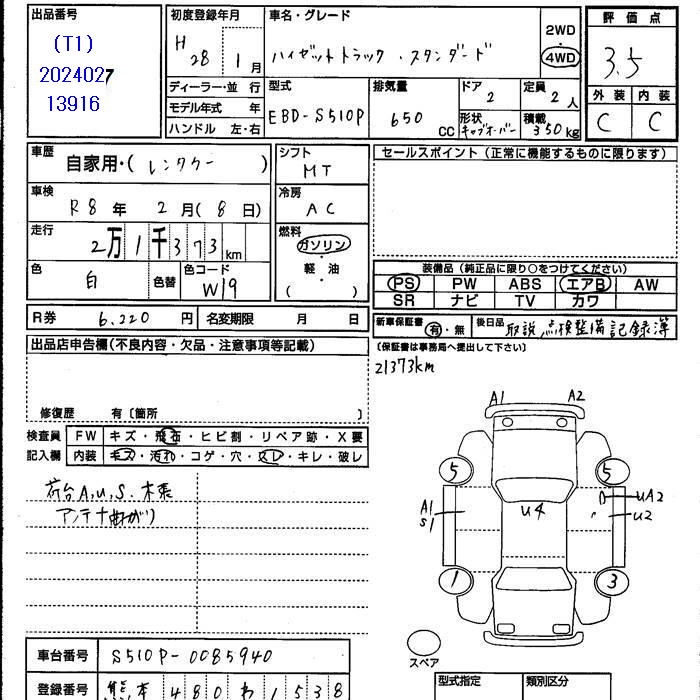 出品番号
(T1)
2024027
13916
初度登録年月
H 28 年 1 月
車名・グレード
ハイゼットトラック・スタンダード
2WD
・
4WD
評価点
3.5
外装 内装
C C
ディーラー・並行
モデル年式 年
ハンドル 左・右
型式
EBD-S510P
排気量
650 CC
ドア
2
形状
キャブオーバー
定員
2人
積載
350kg
車歴
自家用・(レンタカー)
車検
R8年 2月(8日)
走行
2万1千373km
色
白
色替
色コード
W19
シフト
MT
冷房
AC
燃料
ガソリン
・
軽油
( )
セールスポイント(正常に機能するものに限ります)
装備品(純正品に限り○をつけてください)
PS PW ABS エアB AW
SR ナビ TV カワ
R券 6,220 円 名変期限 月 日
新車保証書 有・無 後日品 取説 点検整備記録簿
(保証書は事務局へ提出して下さい)
21373km
出品店申告欄(不良内容・欠品・注意事項等記載)
修復歴 有〔箇所 〕
検査員
記入欄
FW キズ・飛石・ヒビ割・リペア跡・X要
内装 キズ・汚れ・コゲ・穴・スレ・キレ・破レ
荷台A,U,S.木張
アンテナ曲がり
A1 A2
5 5
A1
S1
U4
UA2
U2
1 3
スペア
車台番号 S510P-0085940
登録番号 熊本 480 わ 1538
型式指定 類別区分